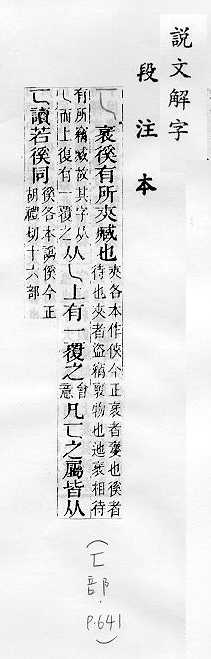 說文解字
段注本
匸 衺徯有所夾臧也 夾各本作俠今正衺者也徯者
待也夾者盜竊褱物也迆衺相待
有所竊臧故其字从
𠃊而上復有一覆之 从𠃊上有一覆之 會意 凡匸之屬皆从
匸讀若徯同 徯各本譌傒今正
胡禮切十六部
(匸部. P.641)